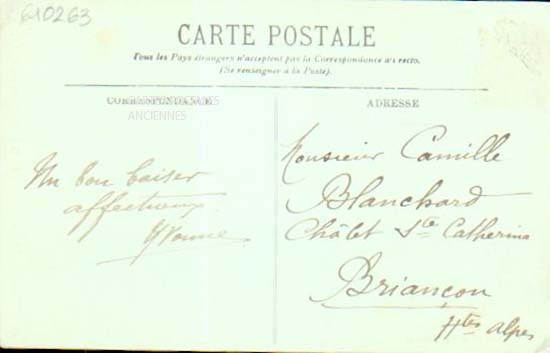 610263
CARTE POSTALE
Tous les Pays étrangers n'acceptent pas la Correspondance au recto.
(Se renseigner à la Poste).
CORRESPONDANCE
CARTES POSTALES
ANCIENNES
Un bon baiser
affectueux
Yvonne
ADRESSE
Monsieur Camille
Blanchard
Châlet Ste Catherine
Briançon
Htes Alpes